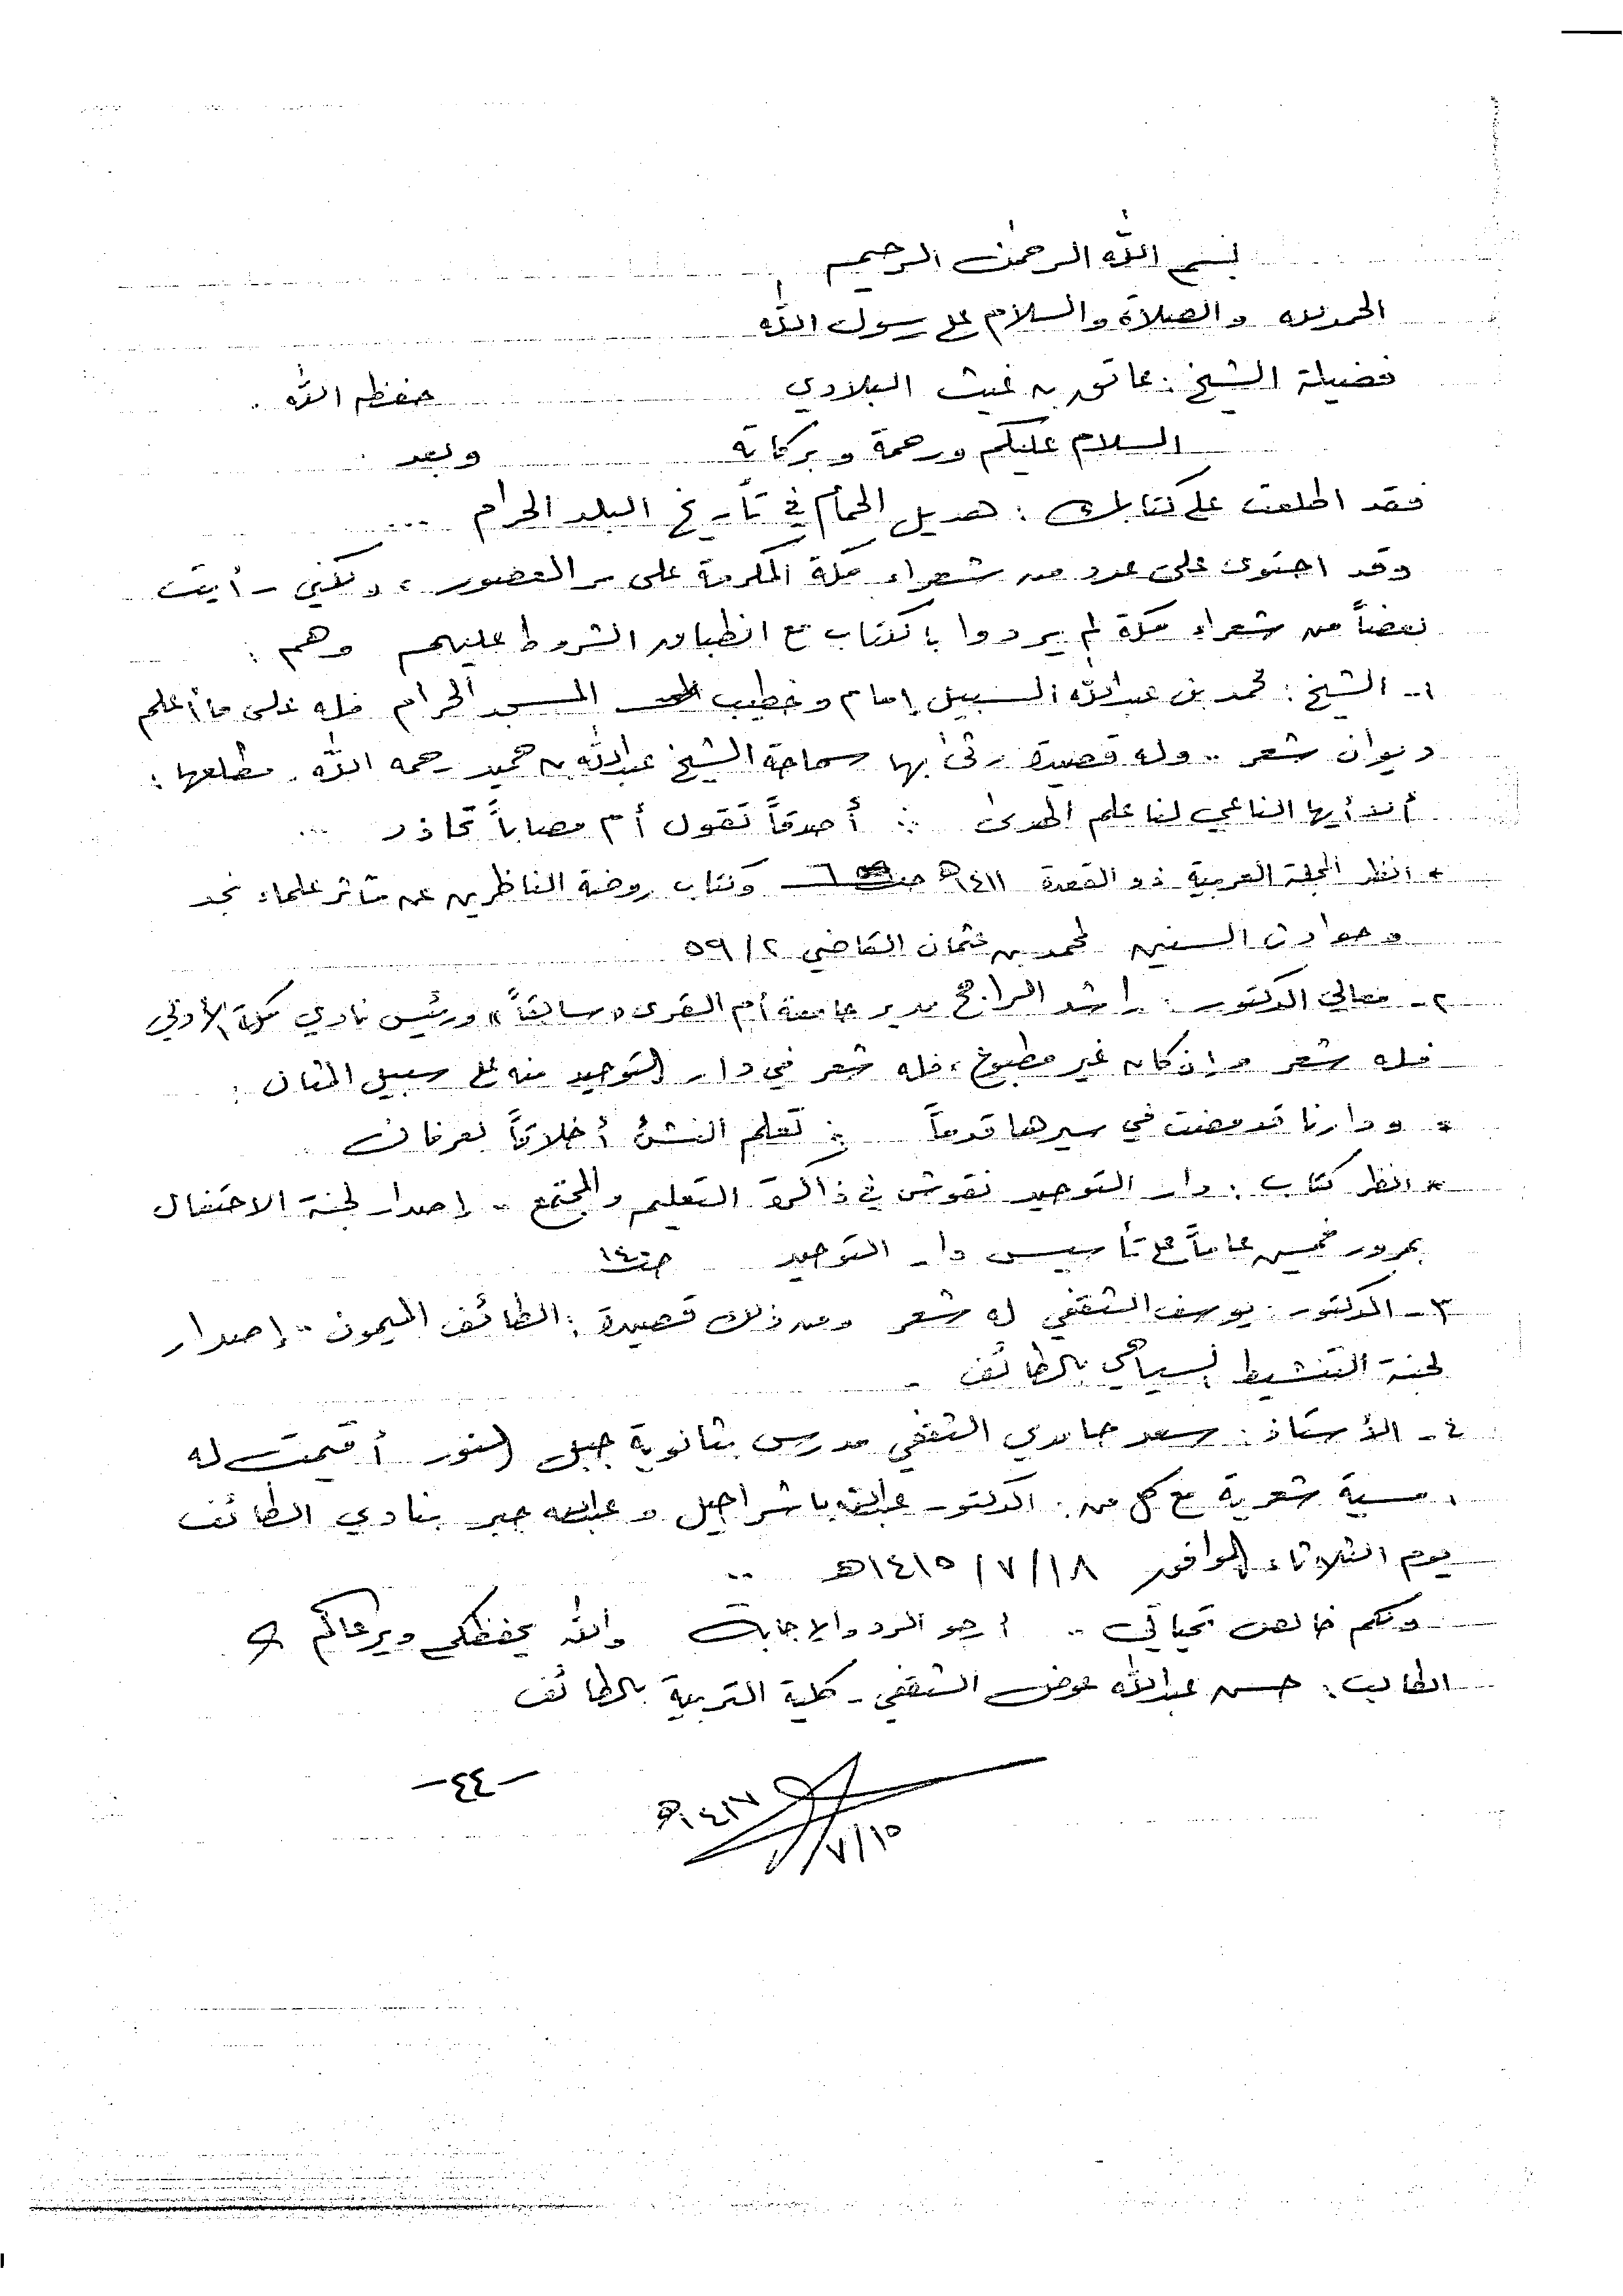 بسم الله الرحمن الرحيم
الحمد لله والصلاة والسلام على رسول الله
فضيلة الشيخ : عاتق بن غيث البلادي حفظه الله .
السلام عليكم ورحمة وبركاته وبعد :
فقد اطلعت على كتابك : هديل الحمام في تأريخ البلد الحرام ...
وقد احتوى على عدد من شعراء مكة المكرمة على مر العصور ، ولكني رأيت
بعضاً من شعراء مكة لم يردوا بالكتاب مع انطباق الشروط عليهم وهم :
١- الشيخ : محمد بن عبدالله السبيل إمام وخطيب المسجد الحرام فله على ما أعلم
ديوان شعر .. وله قصيدة رثى بها سماحة الشيخ عبدالله بن حميد رحمه الله . مطلعها :
ألا أيها الناعي لنا علم الهدى ∴ أصدقاً تقول أم مصاباً تحاذر ...
* انظر المجلة العربية ذو القعدة ١٤١١هـ ص٦ وكتاب روضة الناظرين عن مآثر علماء نجد
وحوادث السنين لمحمد بن عثمان القاضي ٢/ ٥٩
٢- معالي الدكتور : راشد الراجح مدير جامعة أم القرى «سابقاً» ورئيس نادي مكة الأدبي
فله شعر وإن كان غير مطبوع ، فله شعر في دار التوحيد منه على سبيل المثال :
* ودارنا قد مضت في سيرها قدماً ∴ تعلم النشئ أخلاقاً بعرفان .
* انظر كتاب : دار التوحيد نقوش في ذاكرة التعليم والمجتمع - إصدار لجنة الاحتفال
بمرور خمسين عاماً على تأسيس دار التوحيد ص١٤
٣- الدكتور : يوسف الثقفي له شعر ومن ذلك قصيدة : الطائف الميمون - إصدار
لجنة التنشيط السياحي بالطائف -
٤- الأستاذ : سعد حامدي الثقفي مدرس بثانوية جبل النور أقيمت له
أمسية شعرية مع كل من : الدكتور عبدالله باشراحيل و عبدالله جبر بنادي الطائف
يوم الثلاثاء الموافق ١٨/ ٧/ ١٤١٥هـ ..
ولكم خالص تحياتي .. أرجو الرد والإجابة والله يحفظكم ويرعاكم
الطالب : حسن عبدالله عوض الثقفي - كلية التربية بالطائف
١٥/٧/ ١٤١٧هـ
-٤٤-